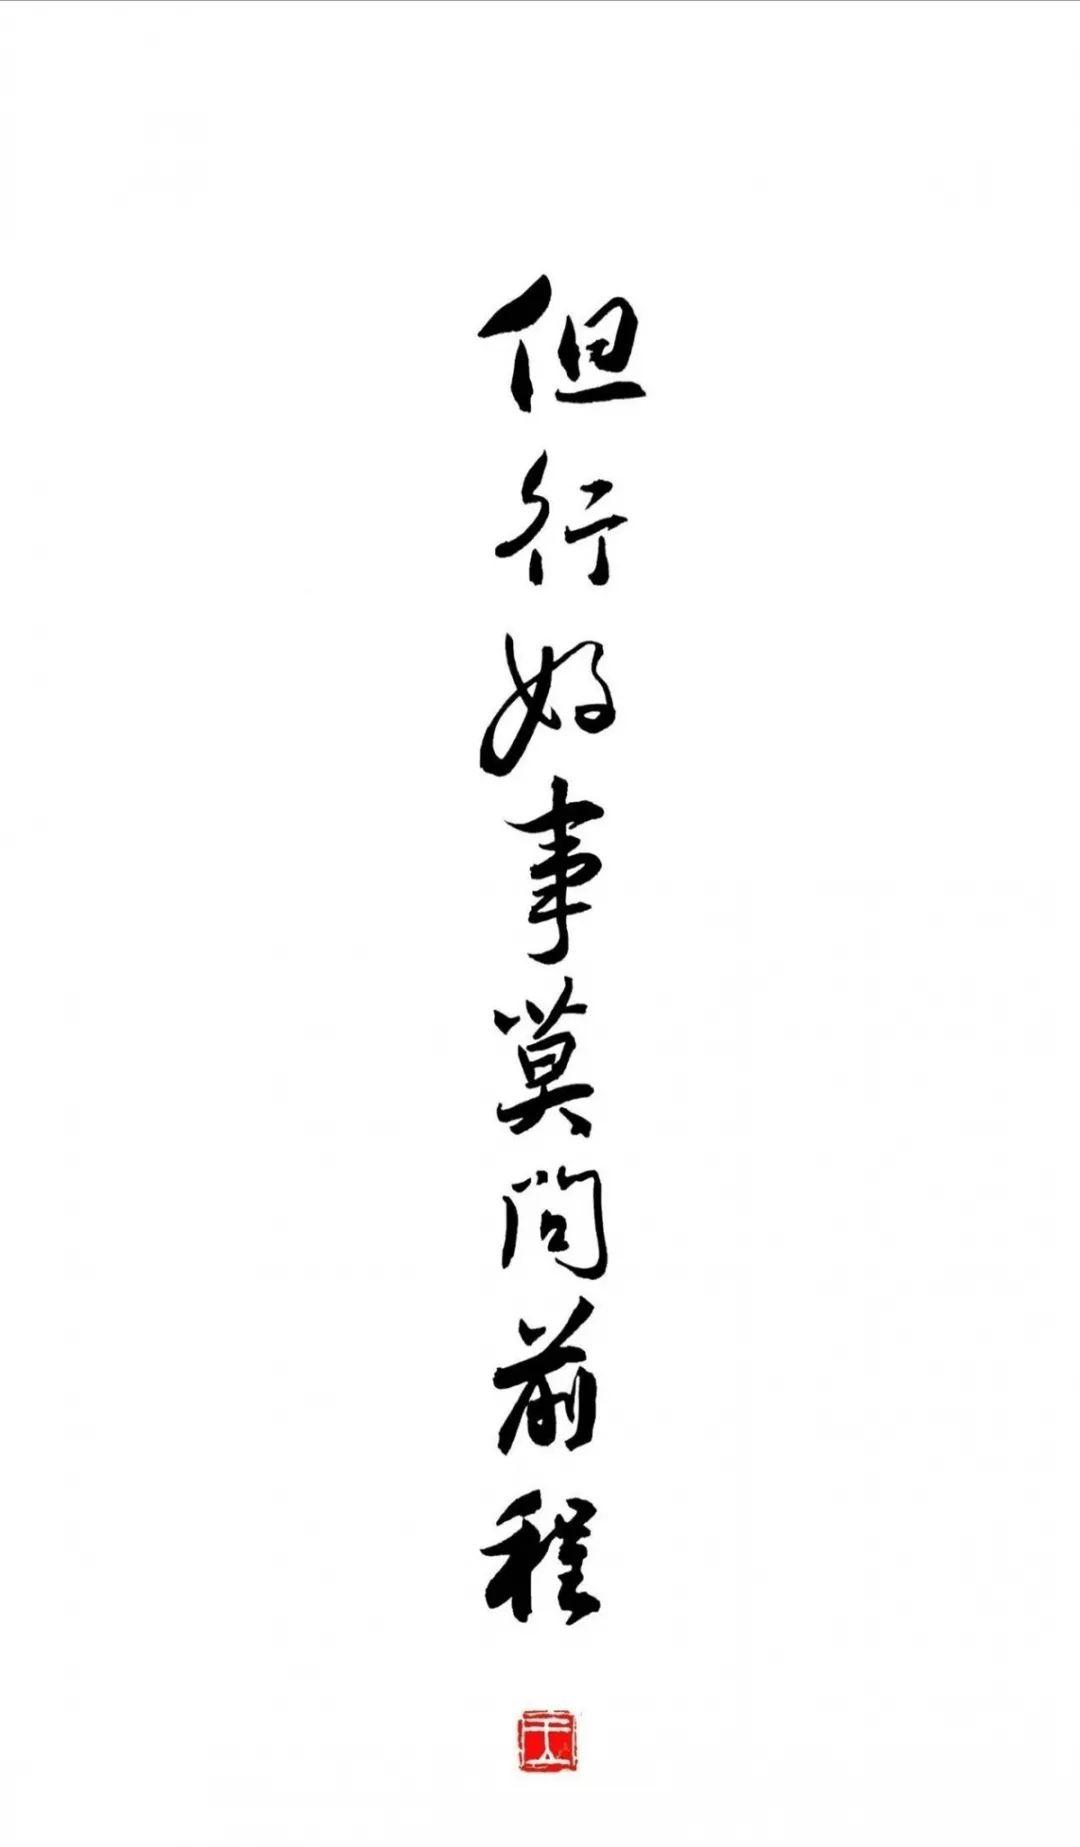 但行好事莫问前程